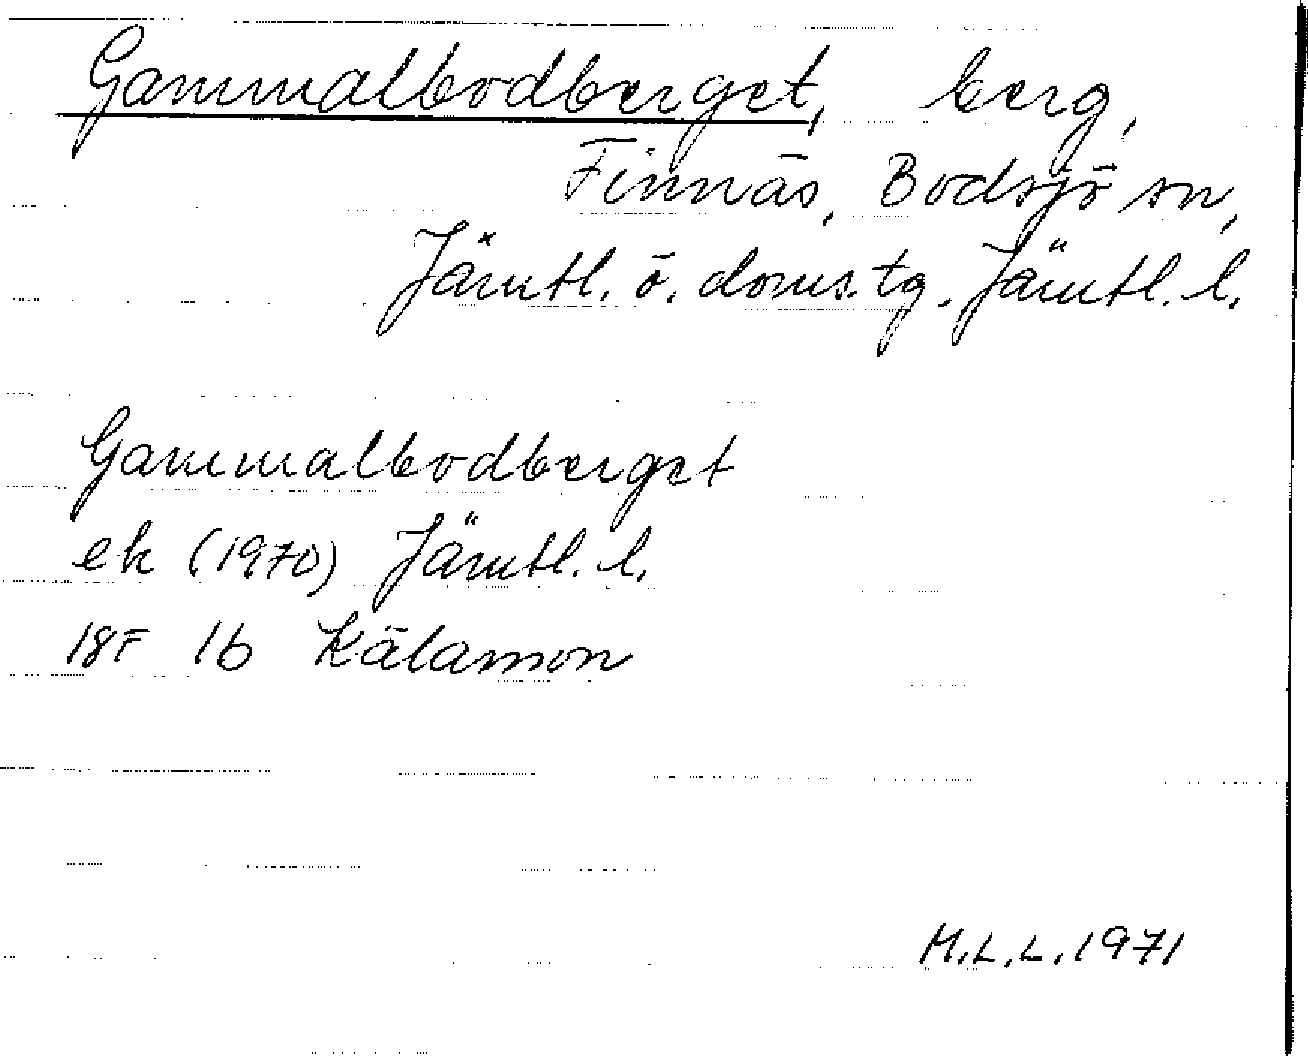 Gammalbodberget, berg,
Finnäs, Bodsjö sn,
Jämtl. ö. doms.tg. Jämtl. l.
Gammalbodberget
ek (1970) Jämtl. l.
18F 1b Kälarmon
M.L.L. 1971